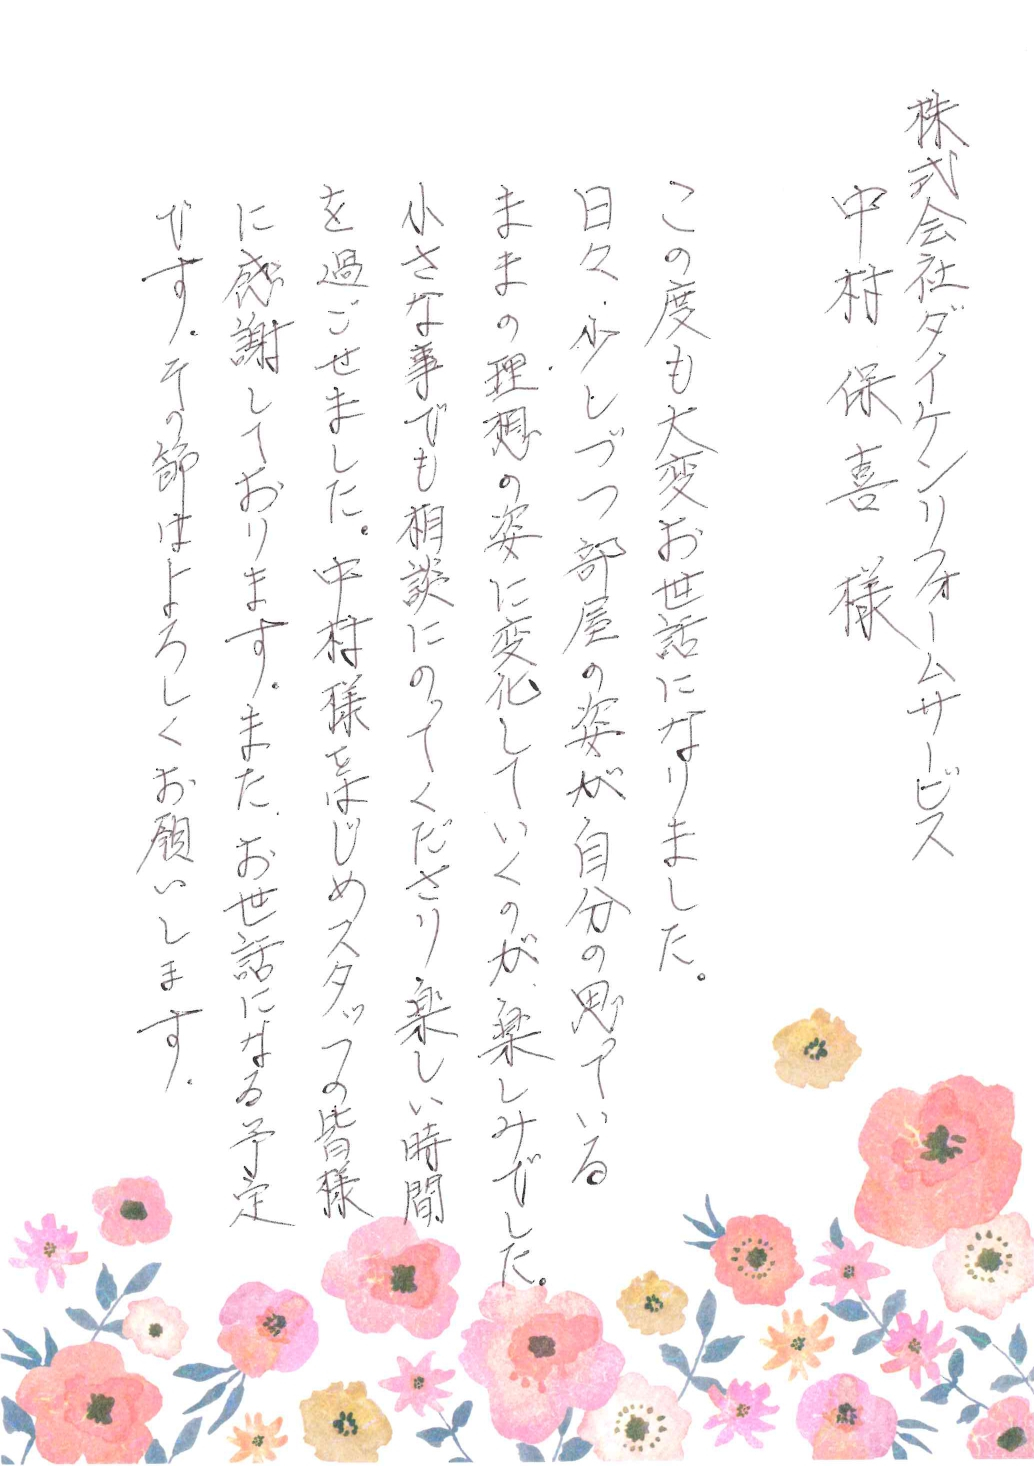 株式会社ダイケンリフォームサービス
中村保喜 様
この度も大変お世話になりました。
日々、少しづつ部屋の姿が自分の思っている
ままの理想の姿に変化していくのが、楽しみでした。
小さな事でも相談にのってくださり楽しい時間
を過ごせました。中村様をはじめスタッフの皆様
に感謝しております。また、お世話になる予定
です。その節はよろしくお願いします。